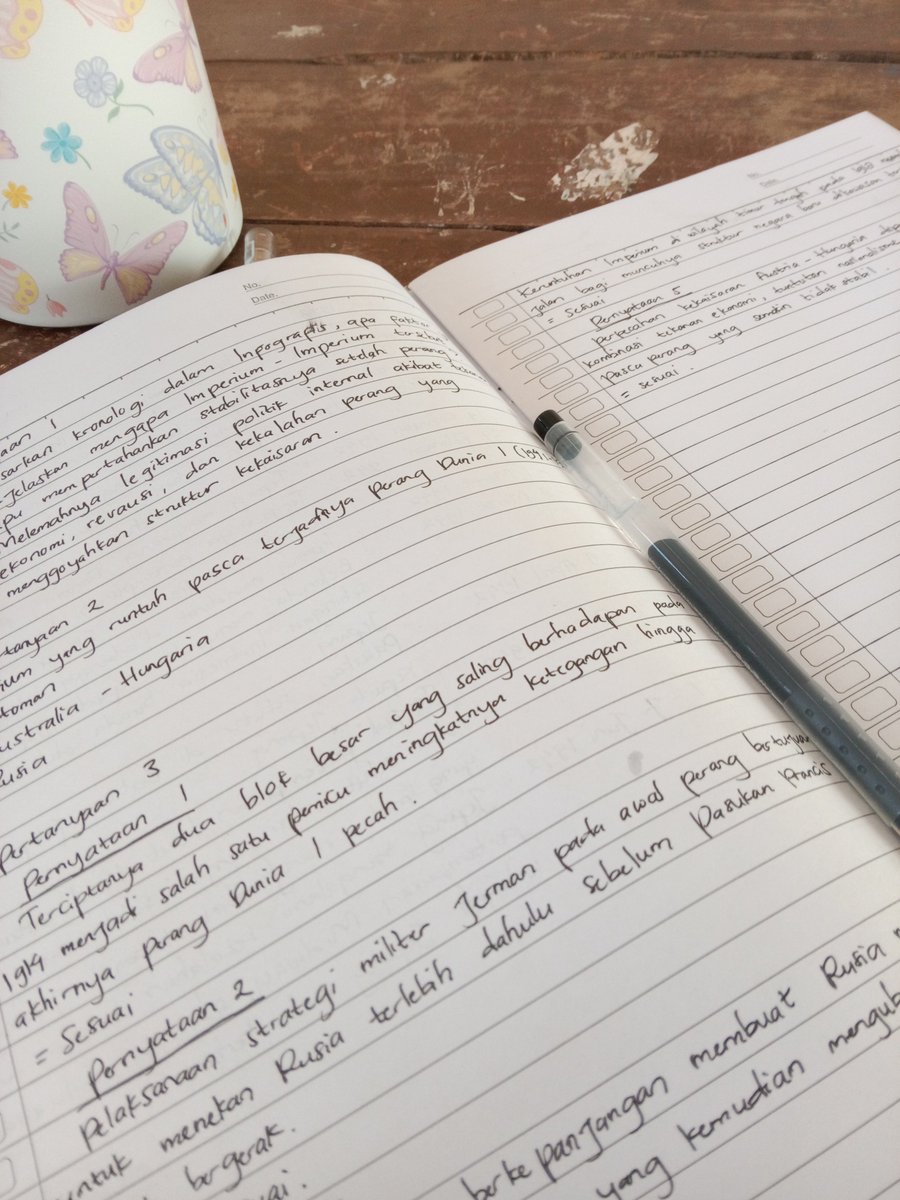 No.
Date.
1
kronologi dalam Infografis, apa
Jelaskan mengapa Imperium - Imperium
mempertahankan stabilitasnya setelah perang
Melemahnya legitimasi politik internal akibat
ekonomi, revousi, dan kekalahan perang yang
menggoyahkan struktur kekaisaran.
2
yang runtuh pasca terjadinya perang Dunia 1
- Hungaria
Pertanyaan 3
Pernyataan 1
Terciptanya dua blok besar yang saling berhadapan pada
1914 menjadi salah satu pemicu meningkatnya ketegangan hingga
akhirnya perang Dunia 1 pecah.
= Sesuai
Pernyataan 2
Pelaksanaan strategi militer Jerman pada awal perang bertujuan
untuk menekan Rusia terlebih dahulu sebelum pasukan Prancis
bergerak.
berkepanjangan membuat Rusia
yang kemudian
No.
Date
Keruntuhan Imperium di wilayah timur tengah pada
jalan bagi munculnya struktur negara baru dikawasan
= Sesuai
Pernyataan 5
perpecahan kekaisaran Austria - Hungaria
kombinasi tekanan ekonomi, tuntutan nasionalisme
Pasca perang yang semakin tidak stabil.
= sesuai.